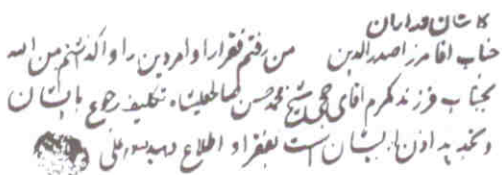 کاشان فدائیان
جناب آقا میرزا صدرالدین من رفتم فقرا را و امر دین را واگذاشتم من الله
بجناب فرزند مکرم آقای حاجی شیخ محمد حسن تکلیف رجوع بایشان
و تجدید اذن ایشان است بفقرا و اطلاع دهید